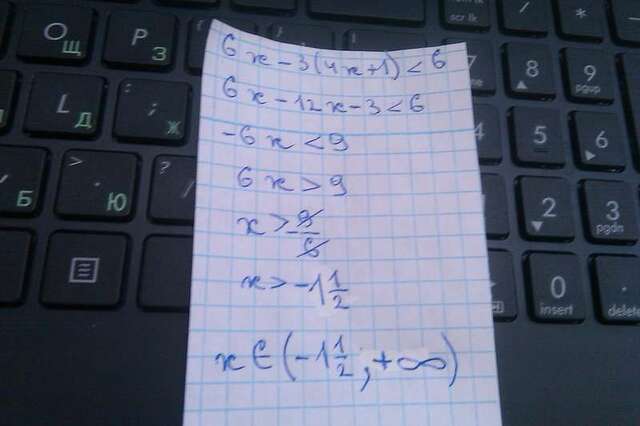 6x-3(4x+1)<6
6x-12x-3<6
-6x<9
6x>9
x>-9/6
x>-1 1/2
x∈(-1 1/2;+∞)
O Щ
P З
scr lk
/
*
8
9 pgup
L Д
: ; Ж
4
5
6
Б
> . Ю
? /
2
3 pgdn
0 insert
. delete